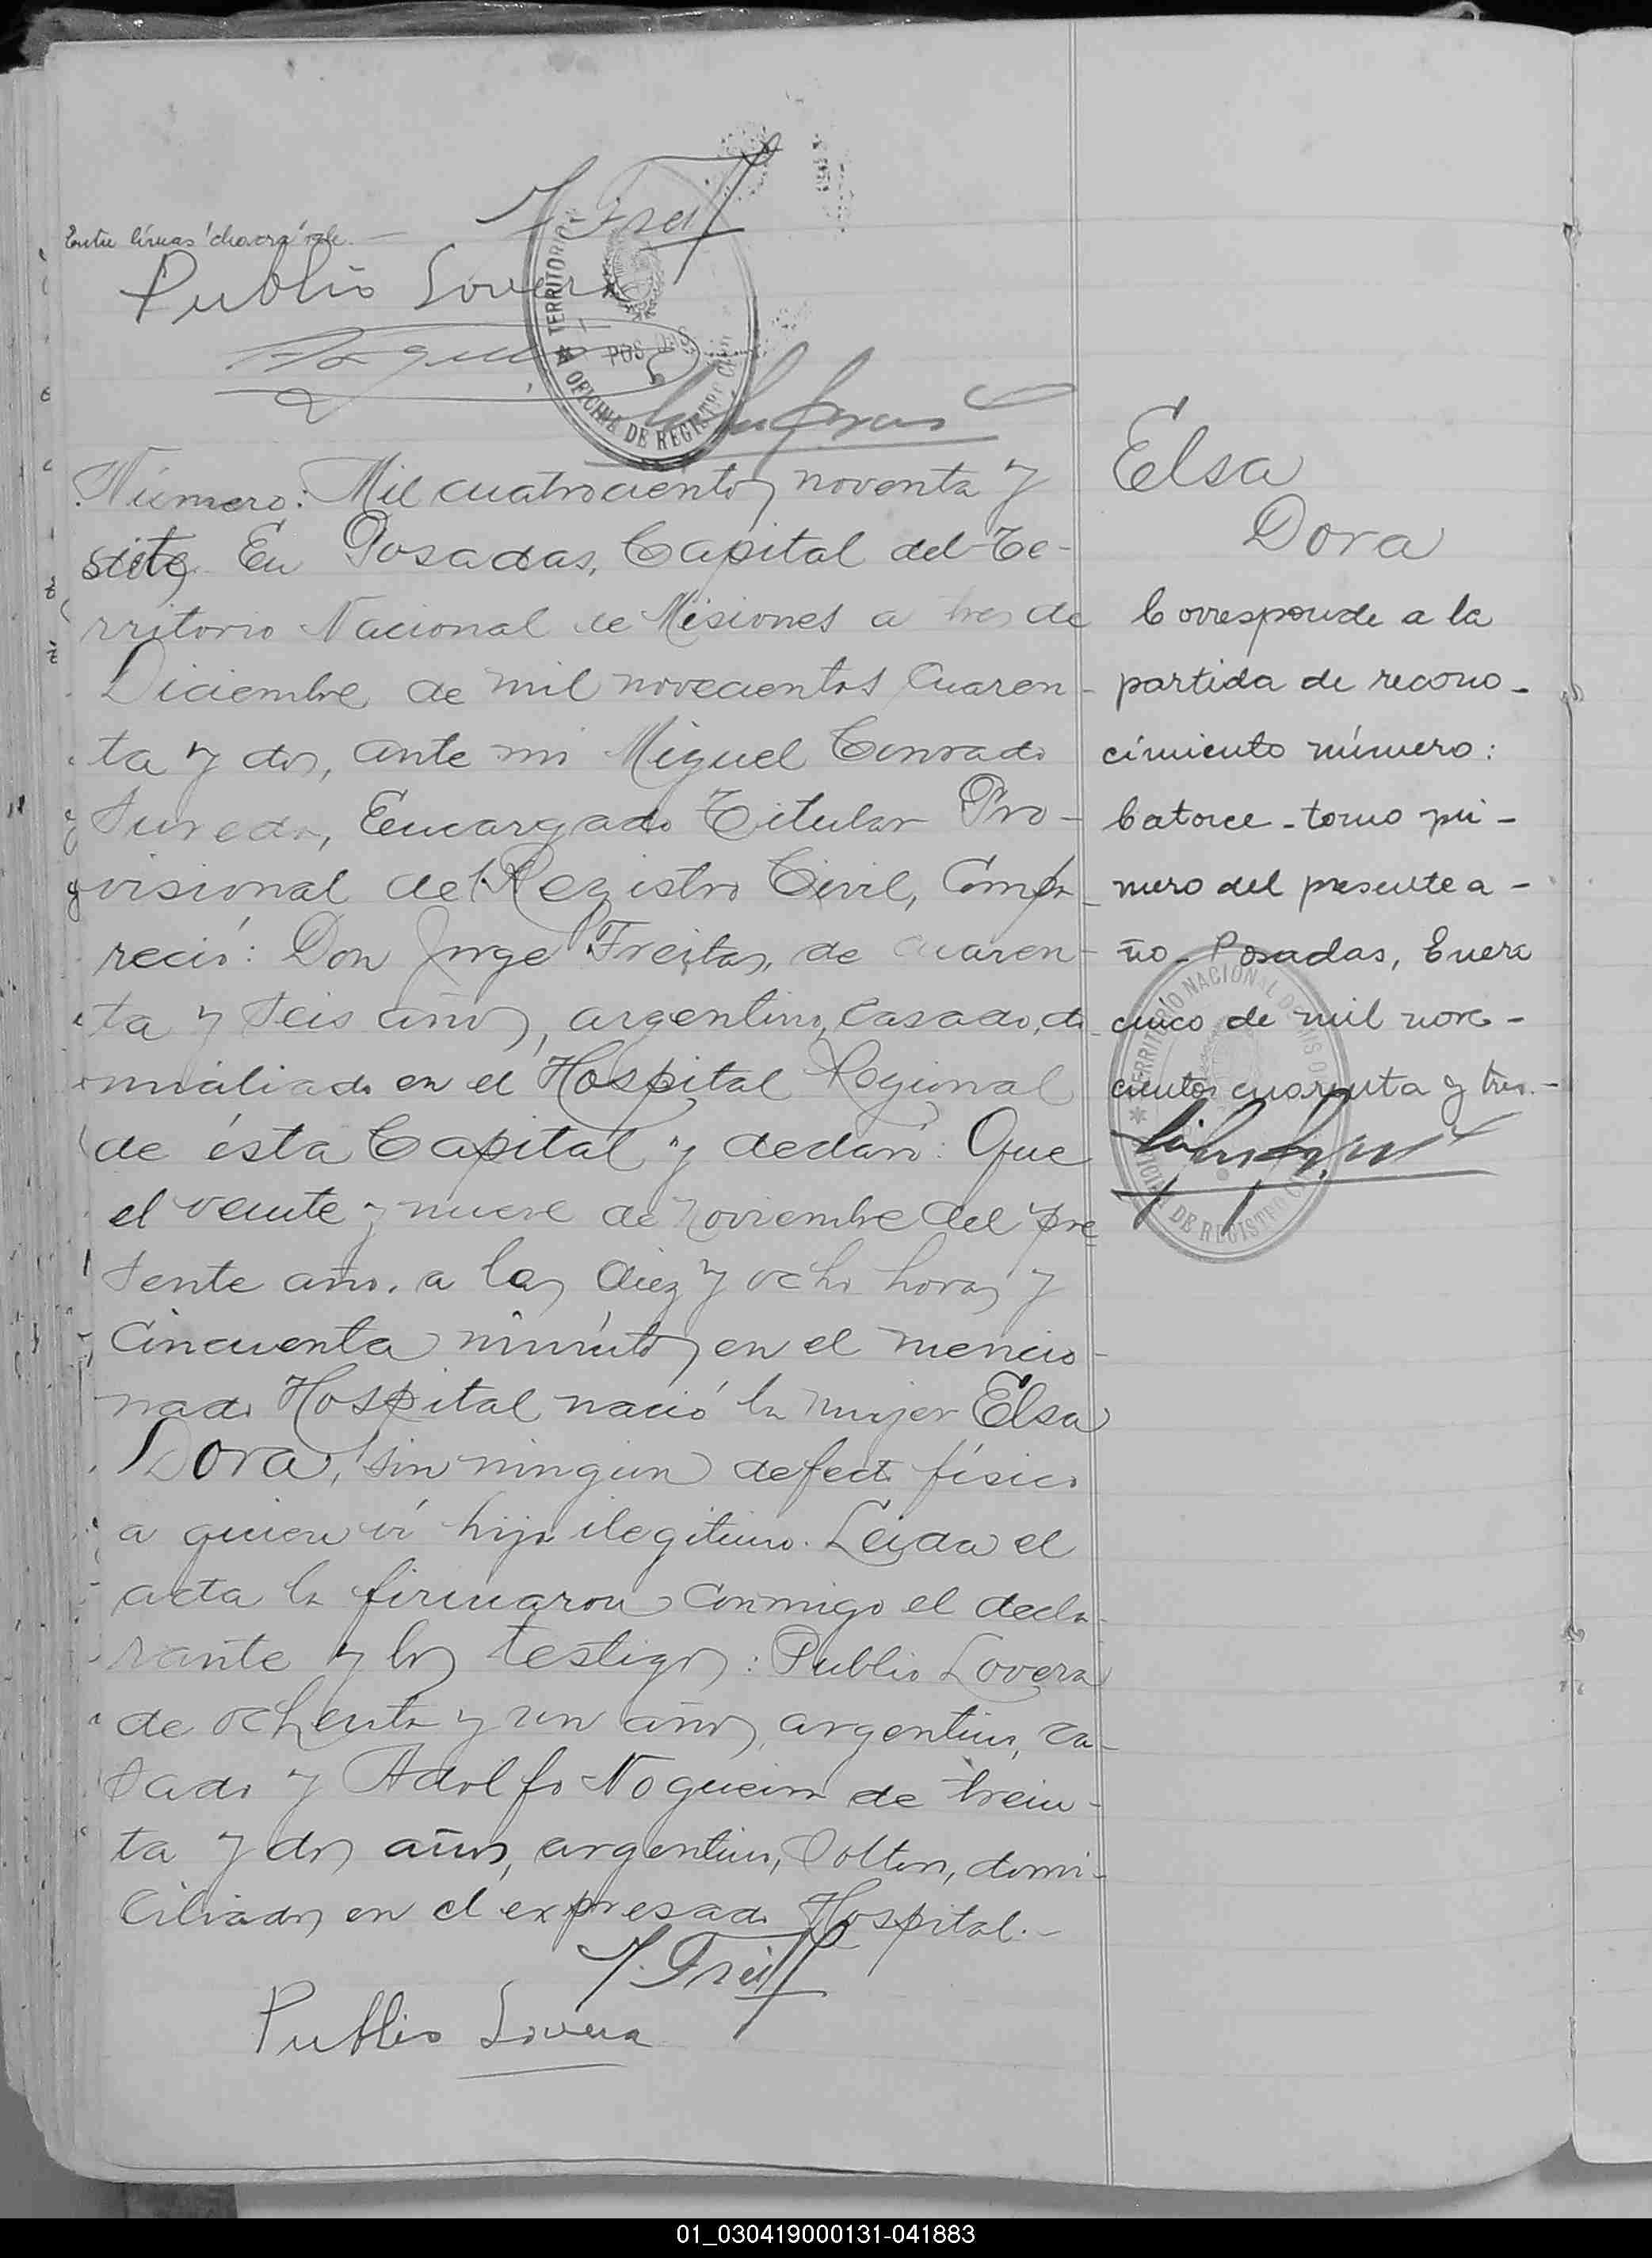 Entre líneas "chacra" vale.—
J. Freit
Publio Lovera
TERRITORIO
POSADAS
OFICINA DE REGISTRO CIVIL
Número: Mil cuatrocientos noventa y
siete. En Posadas, Capital del Te-
rritorio Nacional de Misiones a tres de
Diciembre de mil novecientos cuaren-
ta y dos, ante mi Miguel Conrado
Sureda, Encargado Titular Pro-
visional del Registro Civil, Compa-
reció: Don Jorge Freitas, de cuaren-
ta y seis años, argentino, casado, do-
miciliado en el Hospital Regional
de ésta Capital y declaró: Que
el veinte y nueve de Noviembre del pre-
sente año, a las diez y ocho horas y
cincuenta minutos en el mencio-
nado Hospital nació la mujer Elsa
Dora, sin ningun defecto físico
a quien ví hija ilegitima. Leida el
acta la firmaron conmigo el decla-
rante y los testigos: Publio Lovera
de ochenta y un años, argentino, ca-
sado y Adolfo Nogueira de trein-
ta y dos años, argentino, soltero, domi-
ciliados en el expresado Hospital.-
J. Freit
Publio Lovera
Elsa
Dora
Corresponde a la
partida de recono-
cimiento número:
Catorce - tomo pri-
mero del presente a-
ño - Posadas, Enero
cinco de mil nove-
cientos cuarenta y tres.-
TERRITORIO NACIONAL DE MISIONES
OFICINA DE REGISTRO CIVIL
01_030419000131-041883